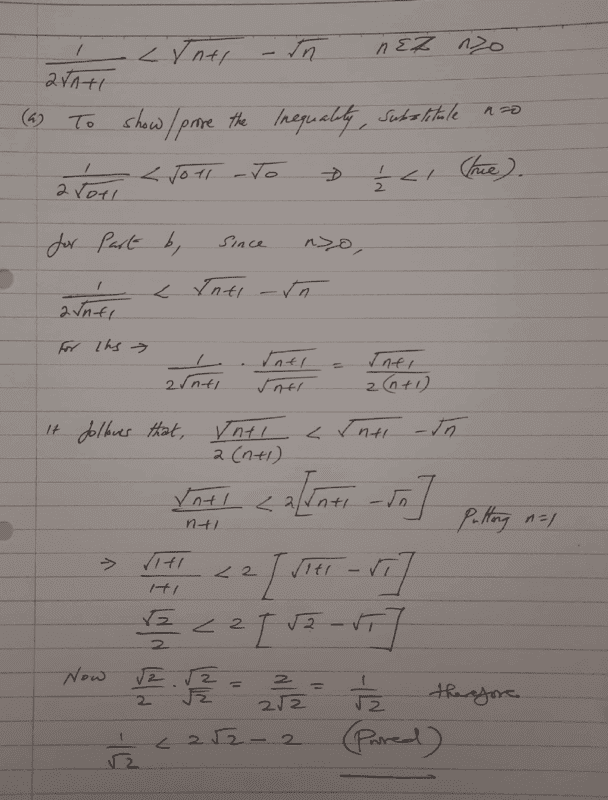 1/(2√n+1) < √n+1 - √n n ∈ Z n≥0
(a) To show/prove the Inequality, substitute n=0
1/(2√0+1) < √0+1 - √0 ⇒ 1/2 < 1 (true).
for Part b, since n≥0,
1/(2√n+1) < √n+1 - √n
For lhs → 1/(2√n+1) · √n+1/√n+1 = √n+1/(2(n+1))
It follows that, √n+1/(2(n+1)) < √n+1 - √n
√n+1/(n+1) < 2[√n+1 - √n] Putting n=1
⇒ √1+1/(1+1) < 2[√1+1 - √1]
√2/2 < 2[√2 - √1]
Now √2/2 · √2/√2 = 2/(2√2) = 1/√2 therefore
1/√2 < 2√2 - 2 (Proved)